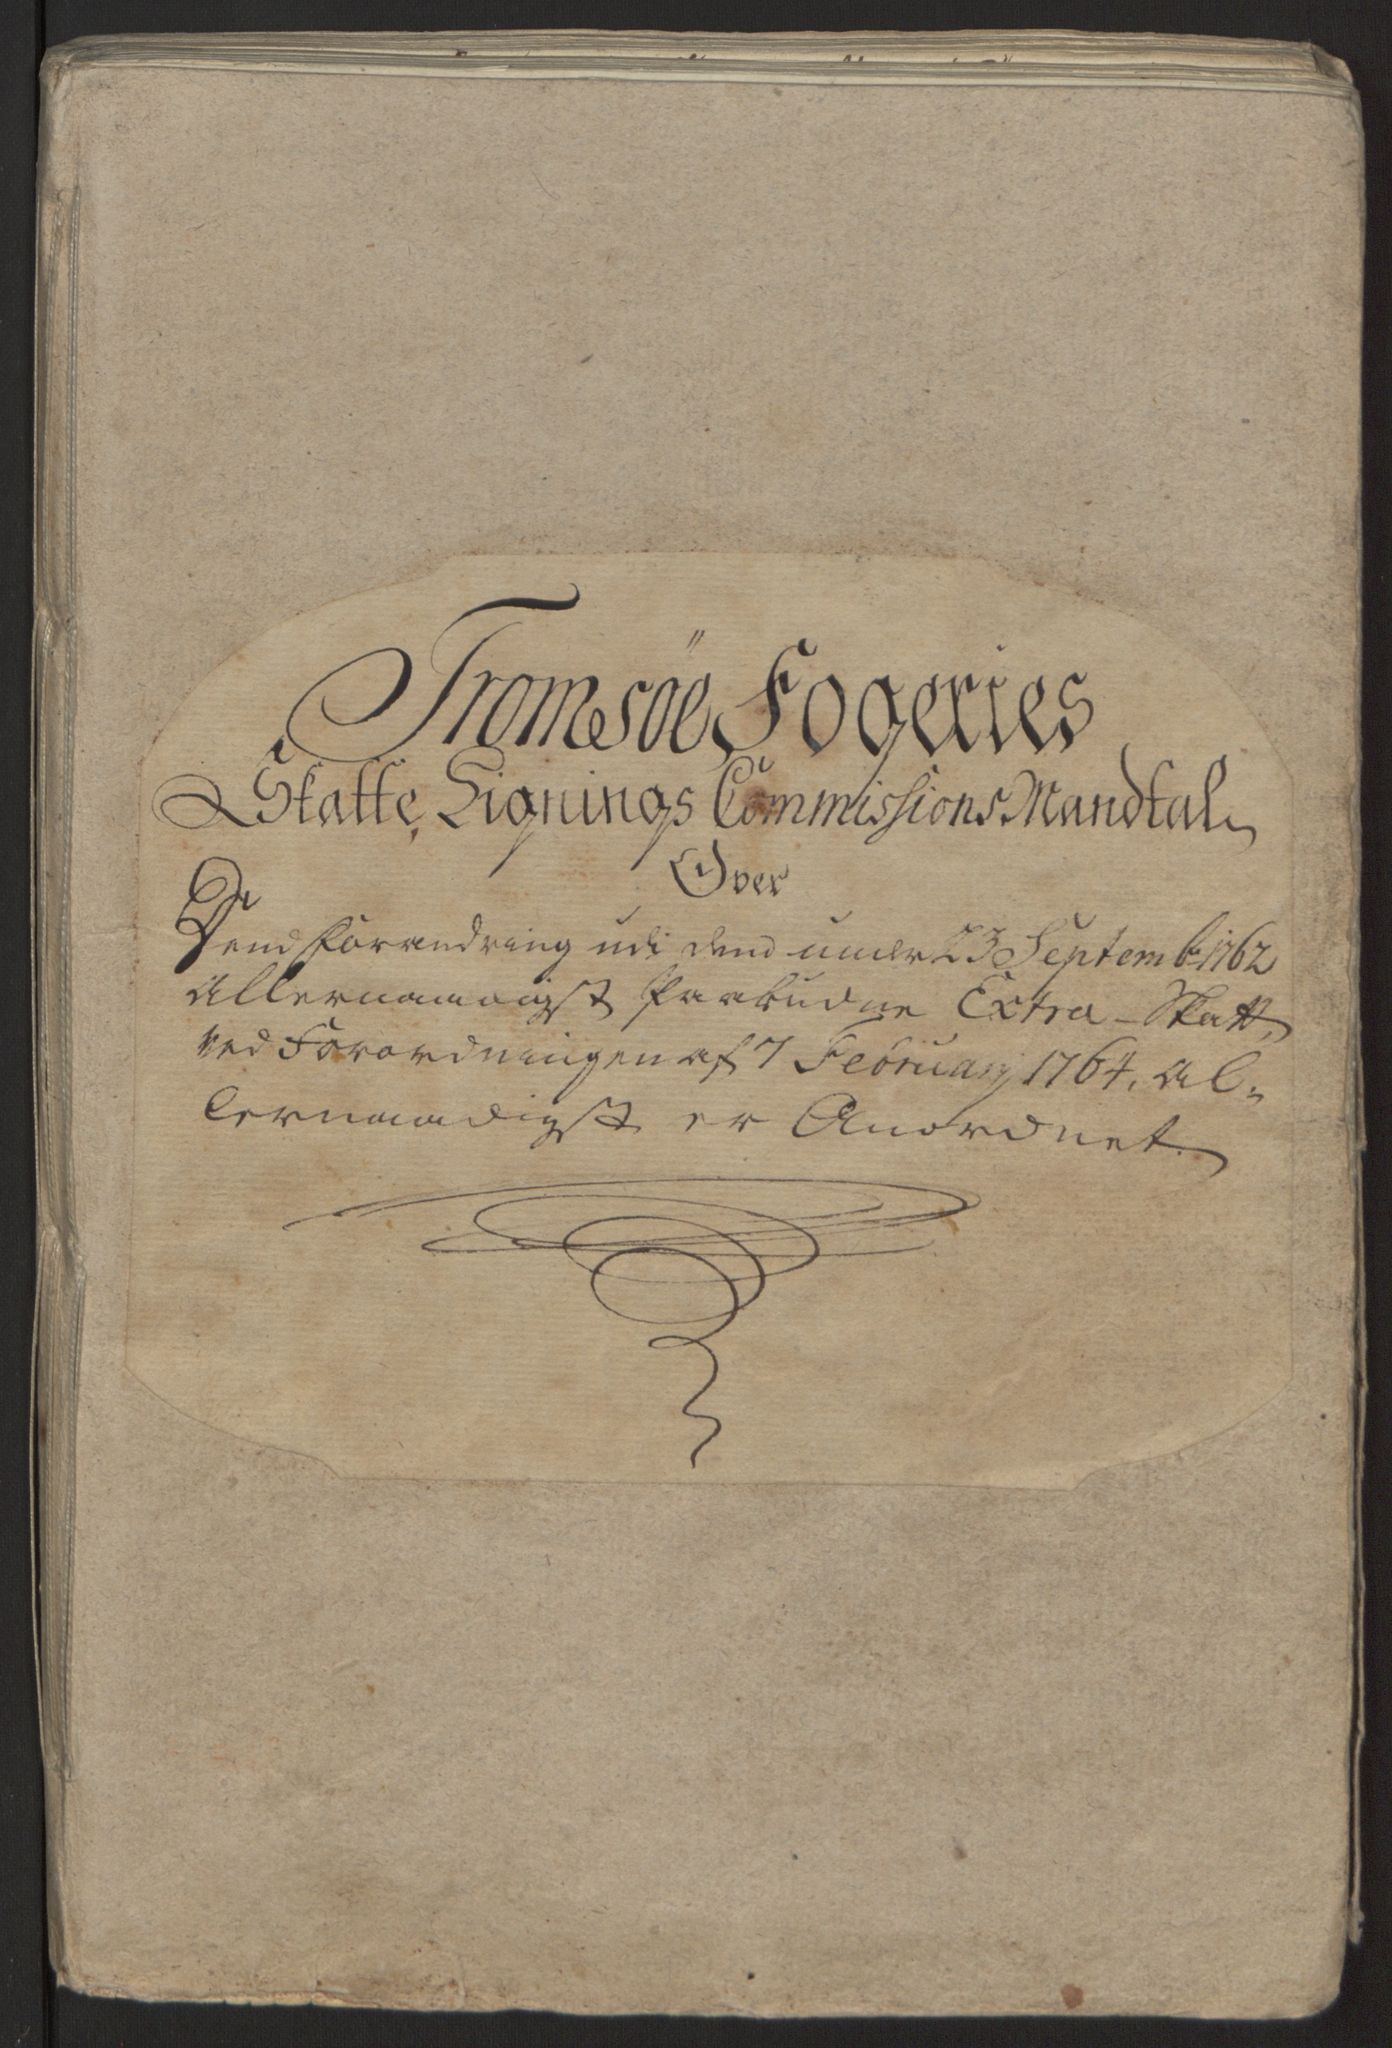 Tromsöe Fogeries
Skatte Lignings Commissions Mandtal
Over
Dend forandring udi dend under 23 Septemb: 1762
Allernaadigst paabudne Extra-Skatt,
ved Forordningen af 7 Februarj 1764, Al-
lernaadigst er Anordnet.